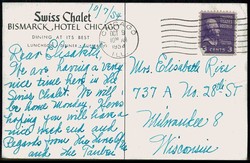 Swiss Chalet
BISMARCK HOTEL CHICAGO
DINING AT ITS BEST
LUNCHEON DINNER
10/7/54
Dear Elisabeth
We are having a very
nice time here in the
Swiss Chalet. We will
be home Monday. Hope
hoping you will have a
nice week end and
Regards from the
and the
CHICAGO
1954
3 CENTS 3
Mrs. Elisabeth Rice
737 A No. 28th St
Milwaukee 8
Wisconsin